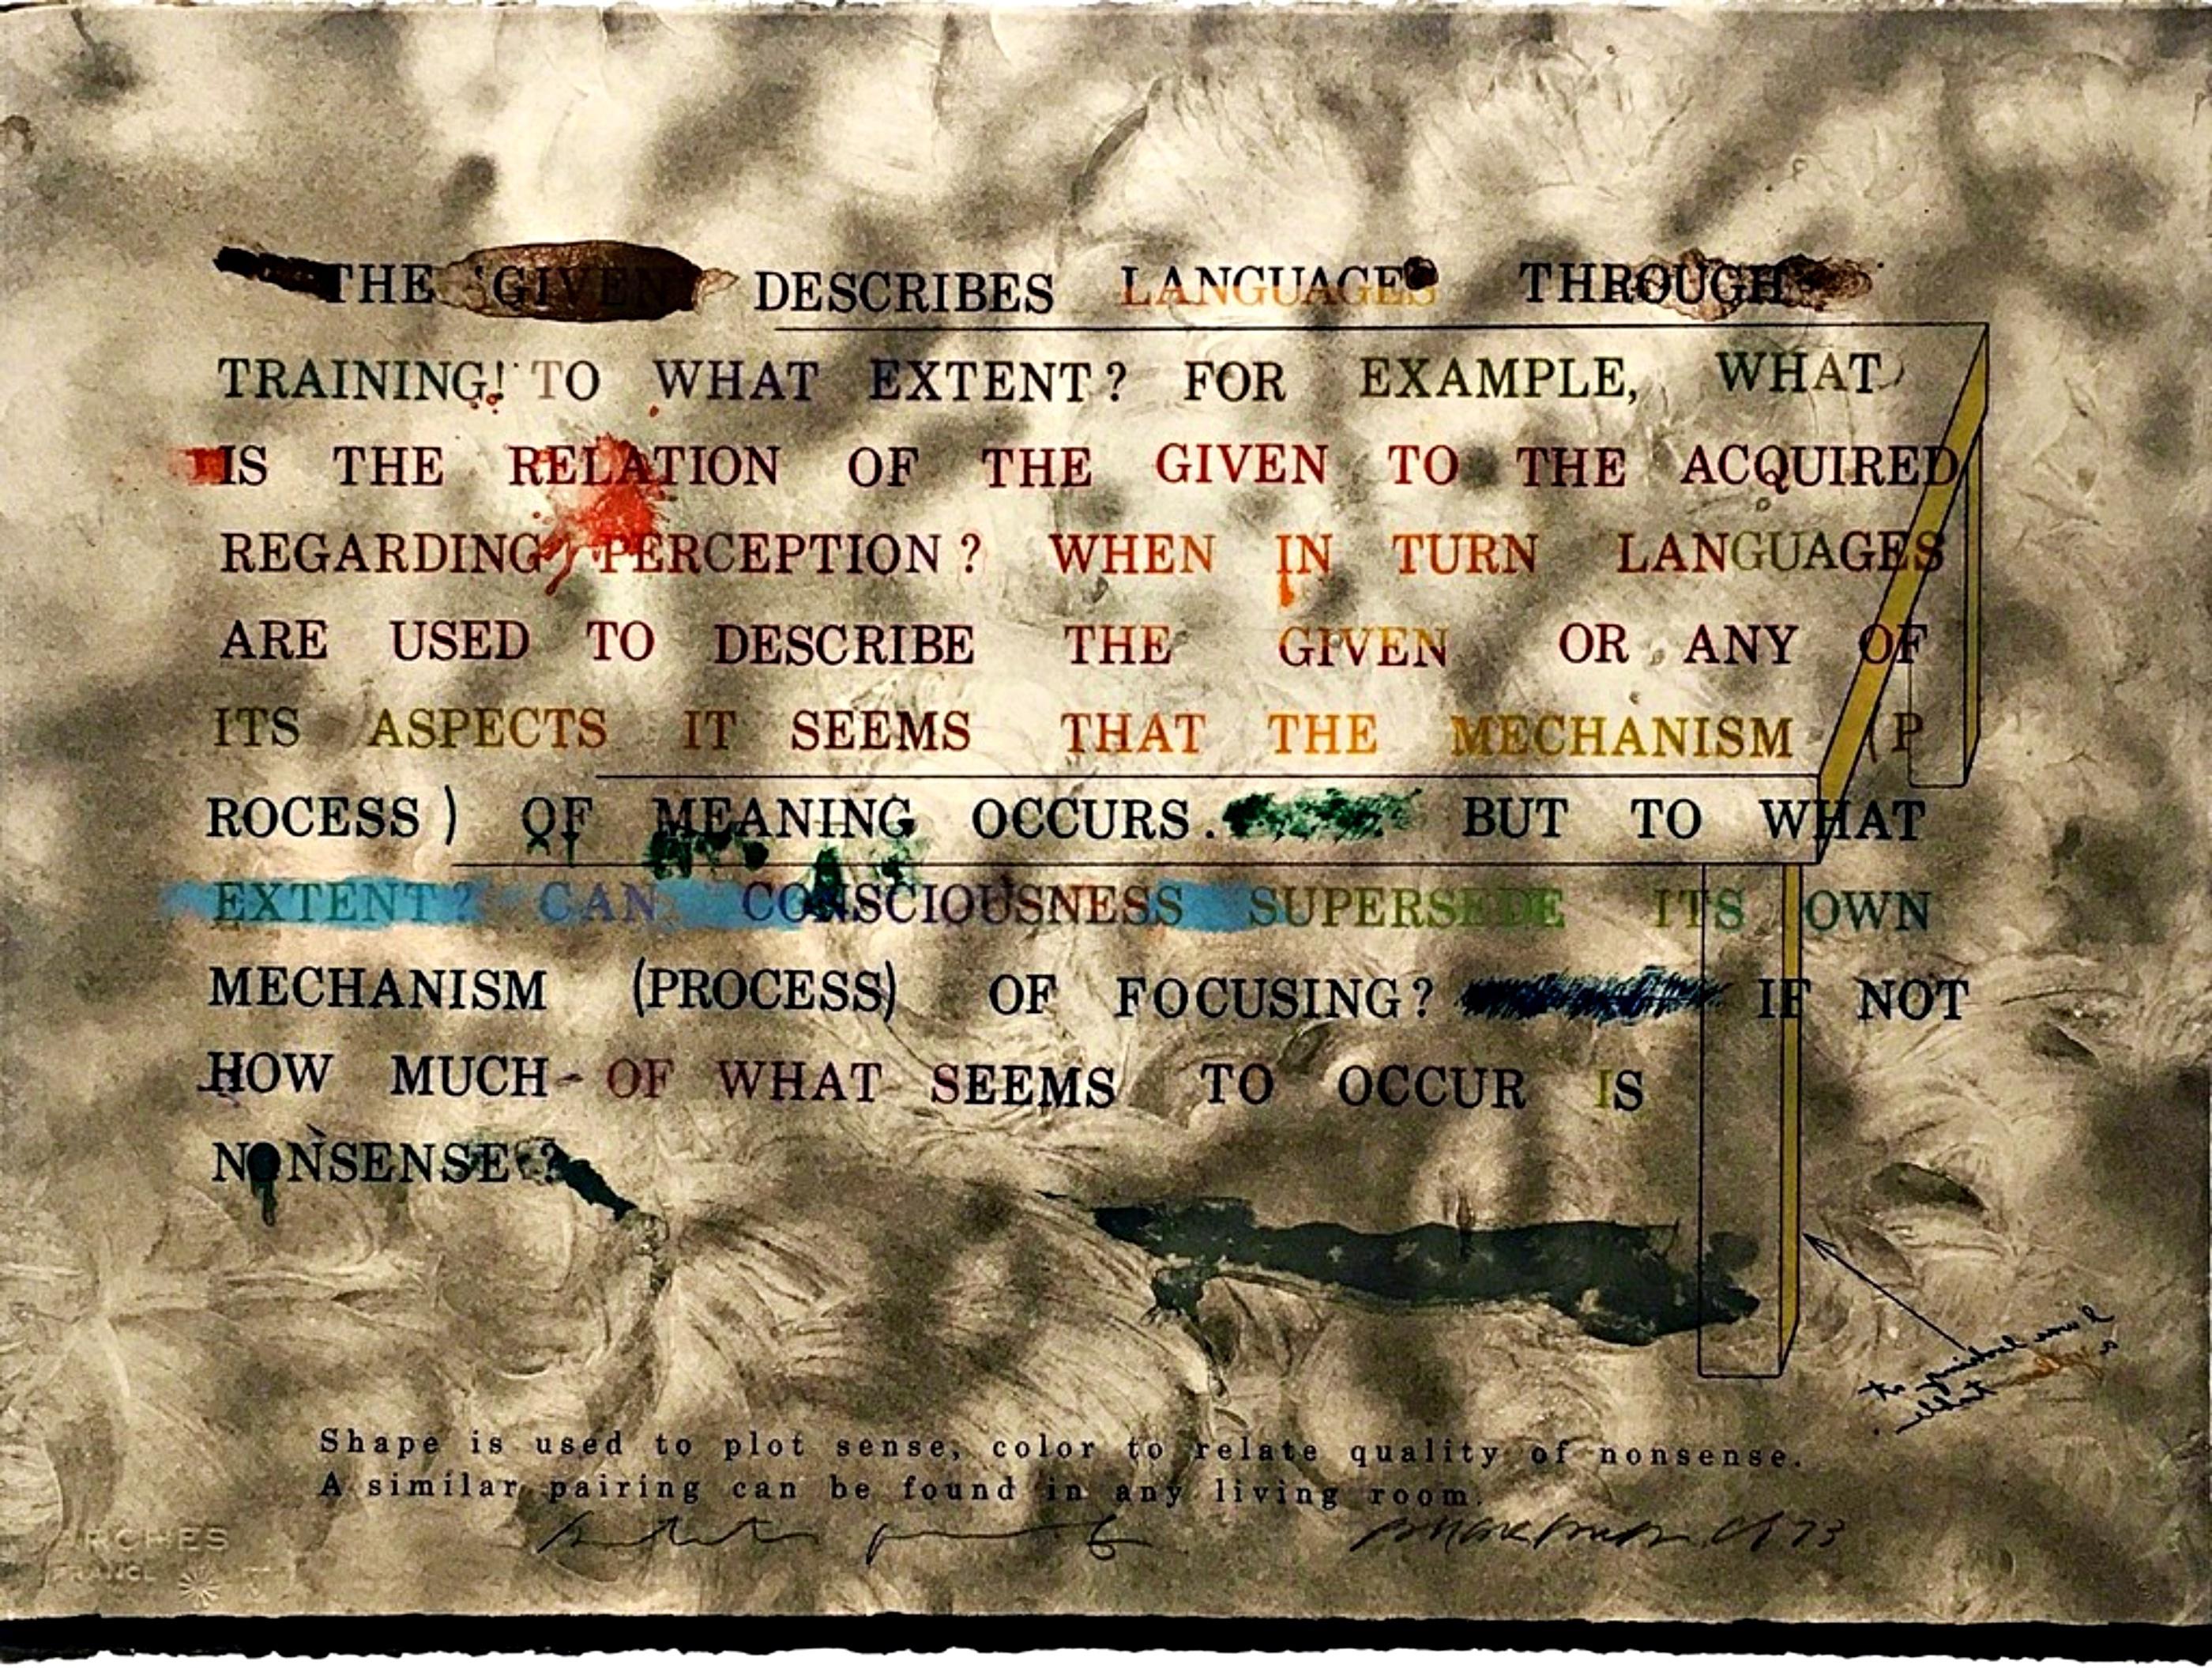 THE 'GIVEN' DESCRIBES LANGUAGES THROUGH
TRAINING! TO WHAT EXTENT? FOR EXAMPLE, WHAT
IS THE RELATION OF THE GIVEN TO THE ACQUIRED
REGARDING PERCEPTION? WHEN IN TURN LANGUAGES
ARE USED TO DESCRIBE THE GIVEN OR ANY OF
ITS ASPECTS IT SEEMS THAT THE MECHANISM (P
ROCESS) OF MEANING OCCURS. BUT TO WHAT
EXTENT? CAN CONSCIOUSNESS SUPERSEDE ITS OWN
MECHANISM (PROCESS) OF FOCUSING? IF NOT
HOW MUCH OF WHAT SEEMS TO OCCUR IS
NONSENSE?
Shape is used to plot sense, color to relate quality of nonsense.
A similar pairing can be found in any living room.
73
ARCHES
FRANCE